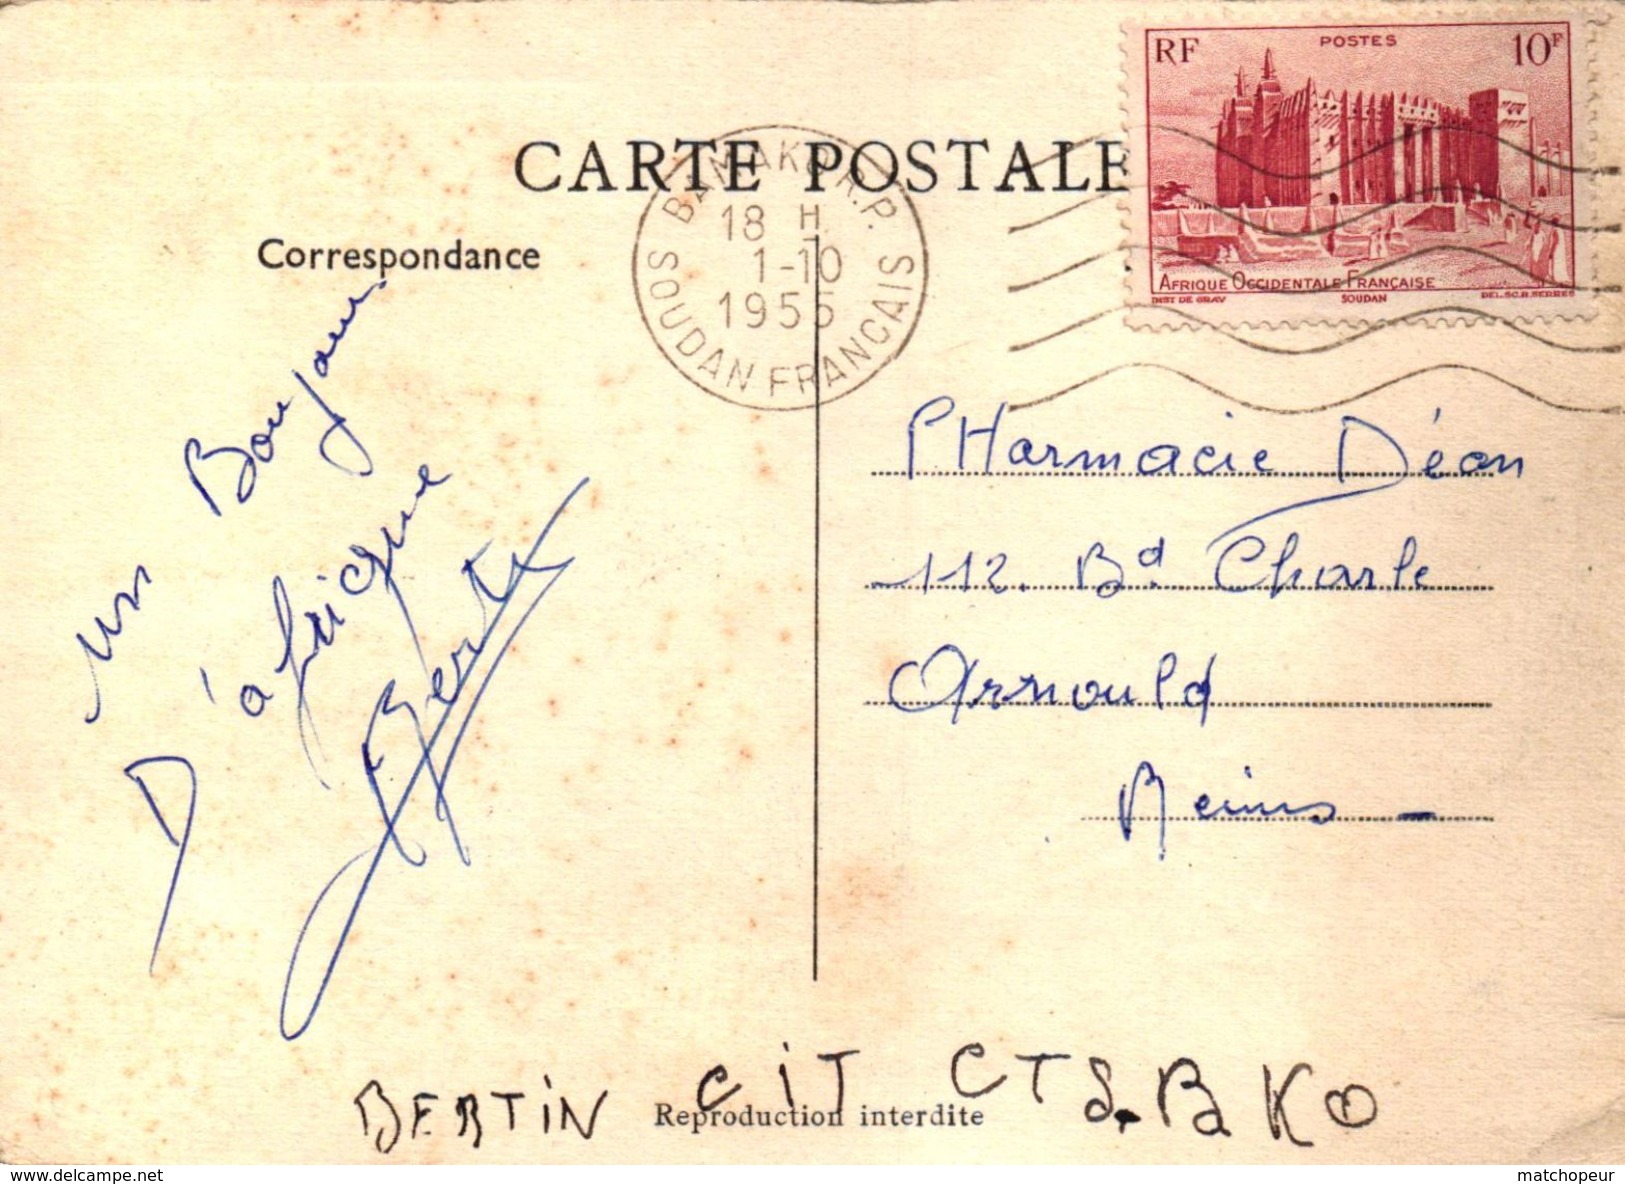 RF POSTES 10F
CARTE POSTALE
BAMAKO R.P.
18 H
1-10
1955
SOUDAN FRANCAIS
AFRIQUE OCCIDENTALE FRANÇAISE
INST DE GRAV SOUDAN DEL.SC.R.SERRES
Correspondance
un Bonjour
D'afrique
Bertin
PHarmacie Déan
112. Bd Charle
Arnould
Reims -
BERTIN CIT CTS. BaKO
Reproduction interdite
delcampe.net
matchopeur